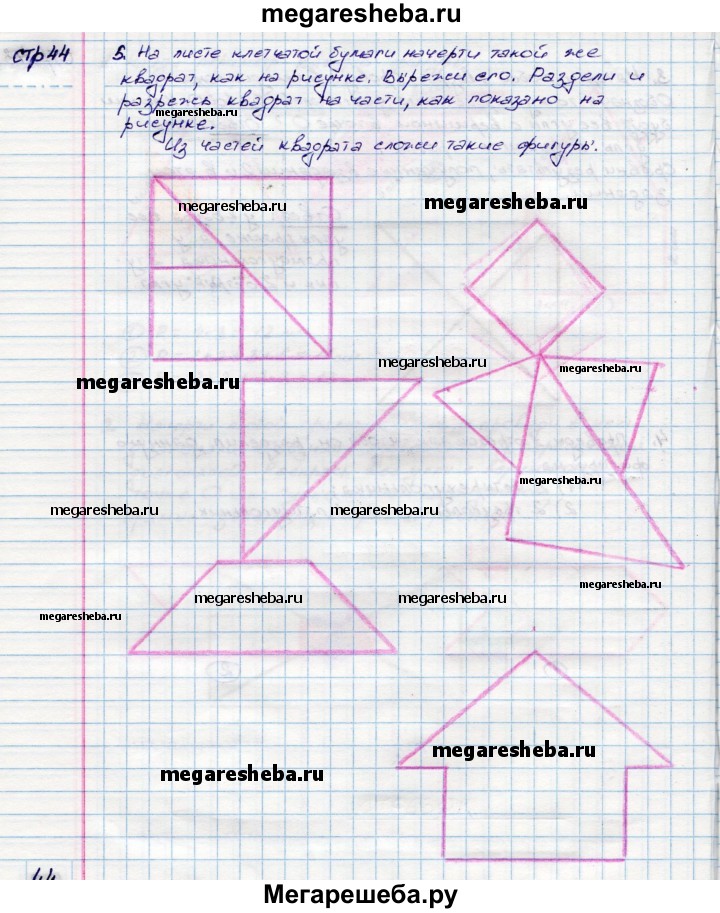 megaresheba.ru
стр 44 5. На листе клетчатой бумаги начерти такой же
квадрат, как на рисунке. Вырежи его. Раздели и
разрежь квадрат на части, как показано на
megaresheba.ru
рисунке.
Из частей квадрата сложи такие фигуры.
megaresheba.ru
megaresheba.ru
megaresheba.ru
megaresheba.ru
megaresheba.ru
megaresheba.ru
megaresheba.ru
megaresheba.ru
megaresheba.ru
megaresheba.ru
megaresheba.ru
megaresheba.ru
megaresheba.ru
megaresheba.ru
44
Мегарешеба.ру